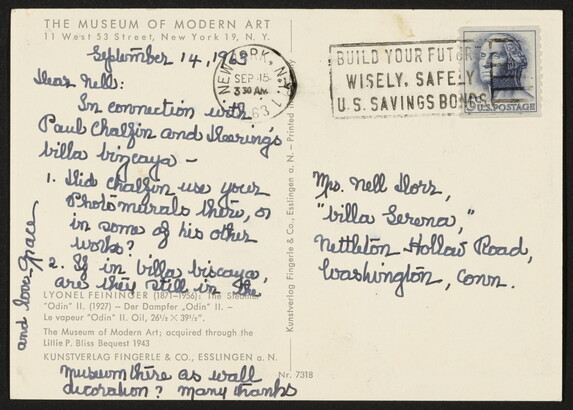 THE MUSEUM OF MODERN ART
11 West 53 Street, New York 19, N. Y.
September 14, 1963
Dear Nell:
In connection with
Paul Chalfin and Deering's
villa bizcaya –
1. Did Chalfin use your
Photo murals there, or
in some of his other
works?
2. If in villa biscaya,
are they still in the
LYONEL FEININGER (1871–1956): The Steamer
"Odin" II. (1927) — Der Dampfer „Odin" II. —
Le vapeur "Odin" II. Oil, 26½ × 39½".
The Museum of Modern Art; acquired through the
Lillie P. Bliss Bequest 1943
KUNSTVERLAG FINGERLE & CO., ESSLINGEN a. N.
Museum there as wall
decoration? Many thanks
and love – Grace
Nr. 7318
Kunstverlag Fingerle & Co., Esslingen a. N. – Printed in
NEW YORK, N.Y. 1
SEP 15
3 30 AM
63
BUILD YOUR FUTURE
WISELY, SAFELY
U.S. SAVINGS BONDS
U.S. POSTAGE
Mrs. Nell Dorr,
"Villa Serena,"
Nettleton Hollow Road,
Washington, Conn.